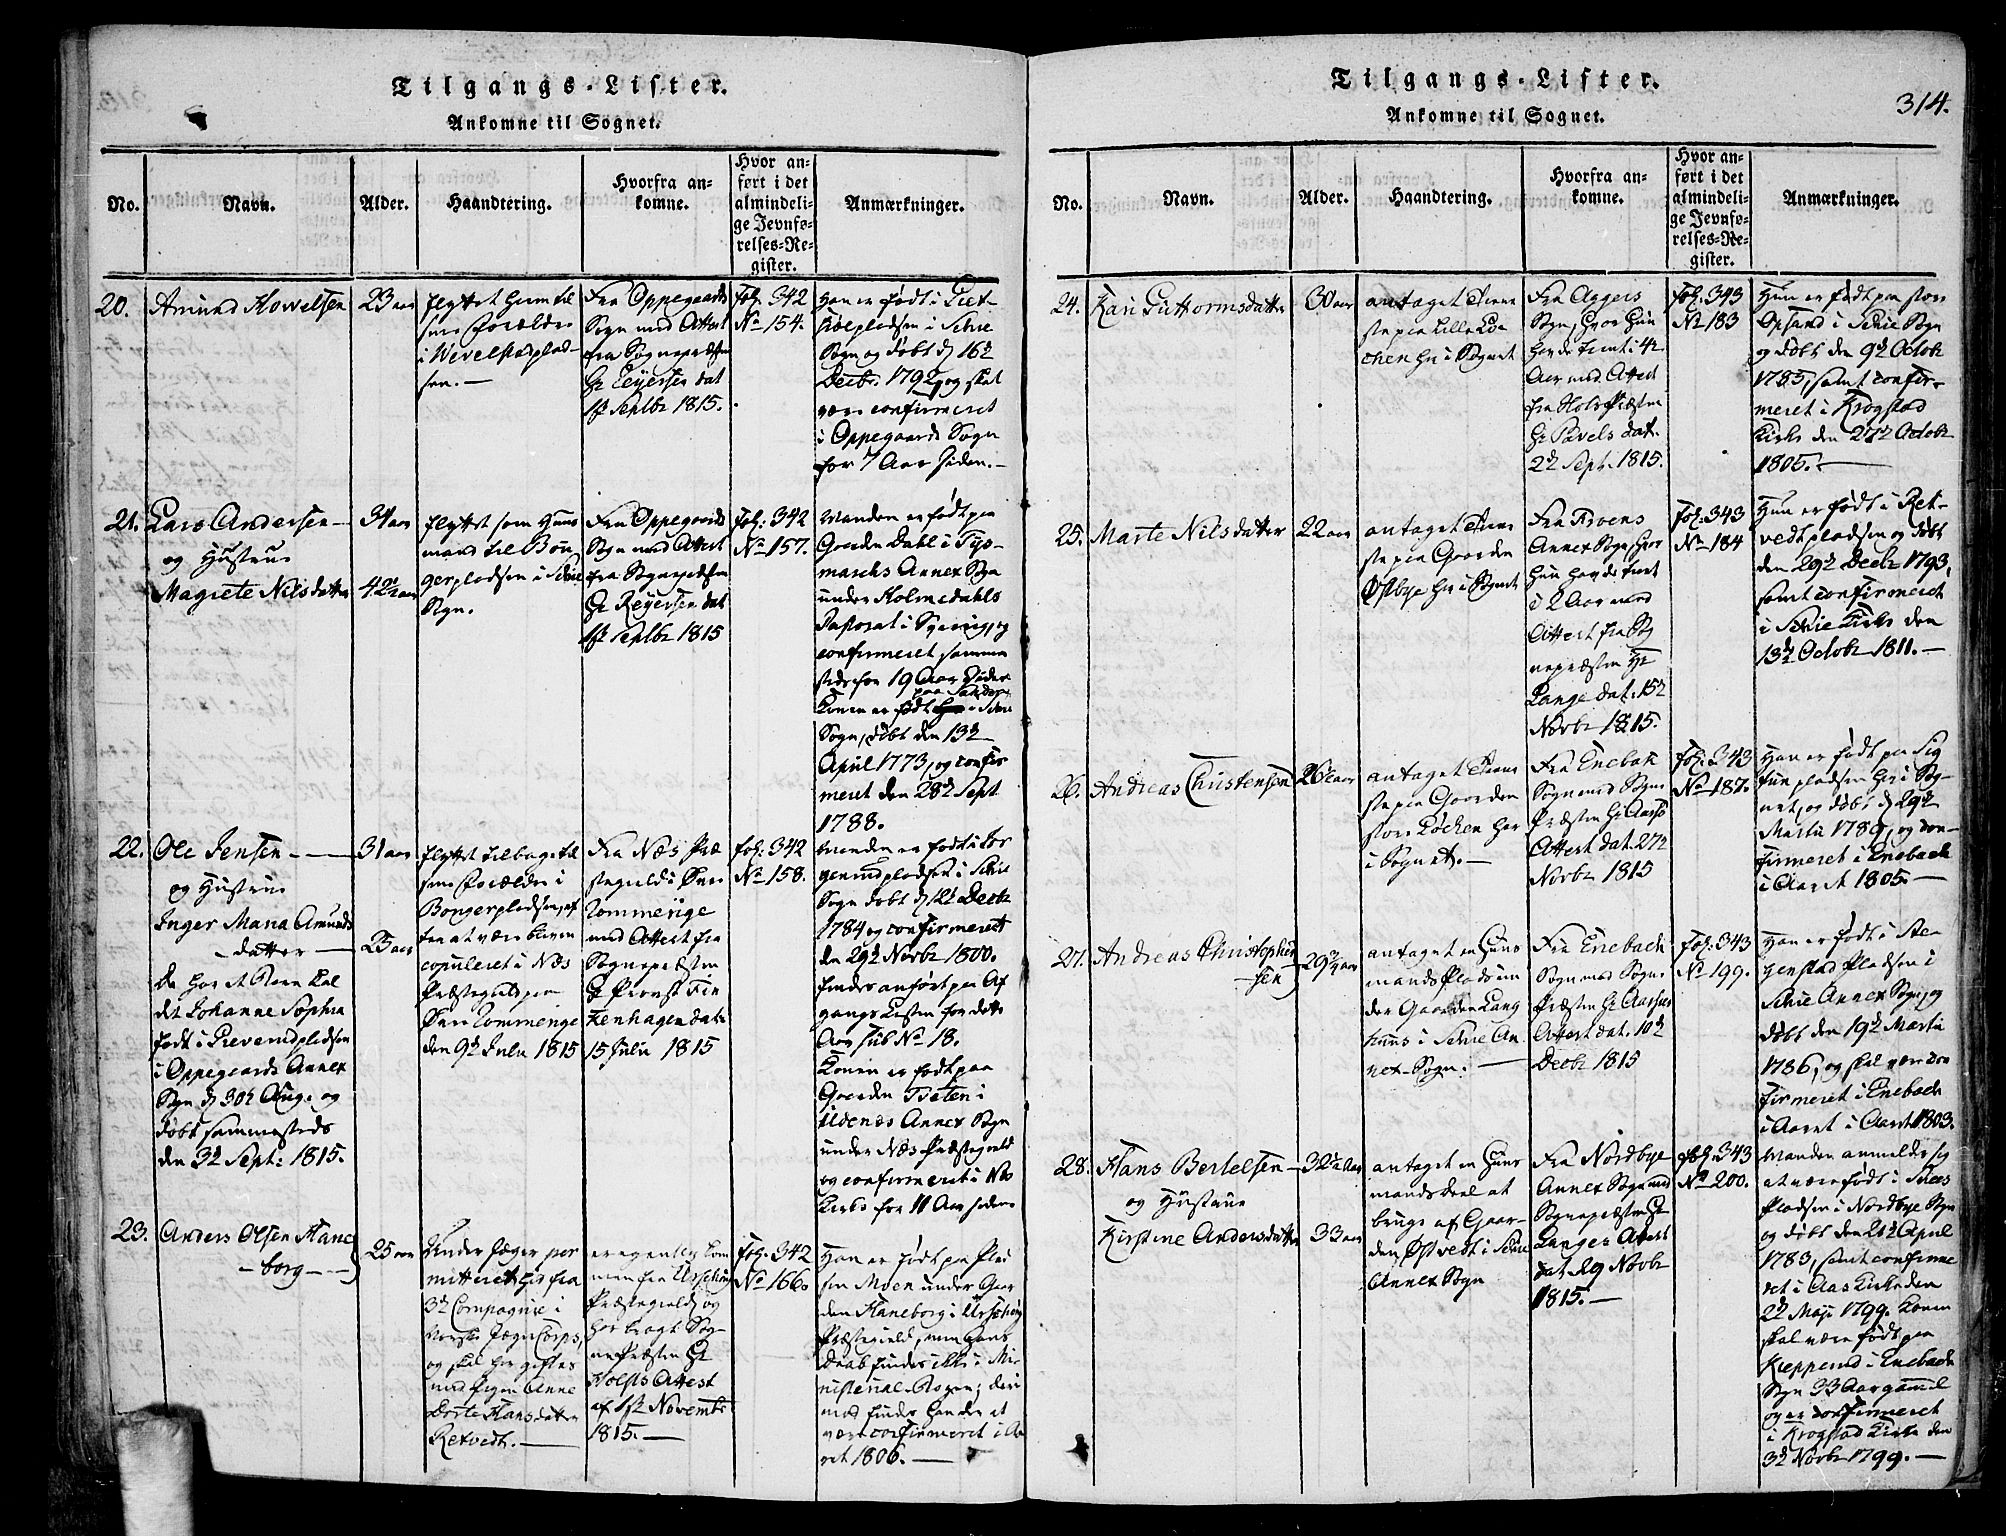 Tilgangs-Lister.
Ankomne til Sognet.
No.
Navn.
Alder.
Haandtering.
Hvorfra an-
komne.
Hvor an-
ført i det
almindeli-
ge Jevnfø-
relses-Re-
gister.
Anmærkninger.
20.
Amund
23 aar
flyttet hiem til
sine Forældre
i
sen. —
Fra Oppegaards
Sogn med Attest
fra Sognepræsten
Hr
1ste Septbr 1815.
Fol: 342
No 154.
Han er født i
i Schie
Sogn og døbt d 16de
Decbr. 1792, og skal
være confirmeret
i Oppegaards Sogn
for 7 Aar siden. —
21.
Lars Andersen —
og Hustrue
Magrete Nilsdatter
34 aar
42 aar
flyttet som Huus
mand til
gerpladsen i Schie
Sogn.
Fra Oppegaards
Sogn med Attest
fra Sognepræsten
Hr Reyersen dat
1ste Septbr 1815
Fol: 342
No 157.
Manden er født paa
Gaarden Dahl i
marchs Annex Sogn
under Holmedahls
Pastorat i Sverrig, og
confirmeret samme
sted for 19 Aar siden
Konen er født i Schie
Sogn, døbt den 13de
April 1773, og confir
meret den 28de Sept
1788.
22.
Ole Jensen —
og Hustrue
Inger Maria Amunds
datter —
De har et Barn kal
det Johanne Sophia
født i Prverudpladsen
i Oppegaards Annex
Sogn d 30te Aug. og
døbt sammesteds
den 3de Sept: 1815.
31 aar
25 aar
flyttet tilbage til
sine Forældre i
Bongerpladsen, ef
ter at være bleven
copuleret i Næs
Præstegield paa
Øvre Rommerige
den 9de Julii 1815
Fra Næs Præ
stegield i Øvre
Rommerige
med Attest fra
Sognepræsten
Hr Provst Fin
kenhagen dat:
15 Julii 1815
Fol: 342
No 158.
Manden er født i
i Schie
Sogn døbt d 12te Decbr
1784 og confirmeret
den 29de Novbr 1800.
findes anført paa Af
gangs Listen for dette
Aar sub No 18.
Konen er født paa
Gaarden Tveten i
Udenæs Annex Sogn
under Næs Præstegield
og confirmeret i Næs
Kirke for 11 Aar siden
23.
Anders Olsen Hane
— borg —
25 aar
Underjæger per
mitteret her fra
3de Compagnie i
Norske JægerCorps,
og skal her giftes
med Pigen Anne
Dorte Hansdatter
Retvedt. —
er egentlig kom
men fra Urschoug
Præstegield, og
har bragt Sog-
nePræsten Hr
Attest
af 1ste November
1815. —
Fol: 342
No 166.
Han er født paa Plad
sen Moen under Gaar
den Haneborg i Urschoug
Præstegield, men hans
Daab findes ikke i Mi-
nisterial-Bogen; deri
mod findes han der at
være confirmeret i Aa
ret 1806. —
Tilgangs-Lister.
Ankomne til Sognet.
314.
No.
Navn.
Alder.
Haandtering.
Hvorfra an-
komne.
Hvor an-
ført i det
almindeli-
ge Jevnfø-
relses-Re-
gister.
Anmærkninger.
24.
Kari Guttormsdatter
30 aar
antaget Tiene
ste paa Lille Lø
chen her i Sognet
Fra Aggers
Sogn, hvor hun
havde tient i 4
Aar med Attest
fra HolsPræsten
Hr Pavels dat.
2de Sept. 1815.
Fol: 343
No 183
Hun er født paa store
Opsand i Schie Sogn
og døbt den 9de Octobr
1785, samt confir-
meret i Krogstad
Kirke den 27de Octobr
1805. —
25.
Marte Nilsdatter
22 aar
antaget Tiene
ste paa Gaarden
Østbye her i Sognet
Fra
Annex Sogn, hvor
hun havde tient
i 2 Aar med
Attest fra Sog
nepræsten Hr
Lange dat. 15de
Novbr 1815.
Fol: 343
No 184
Hun er født i Ret-
vedtpladsen og døbt
den 29de Decbr 1793,
samt confirmeret
i Schie Kirke den
13de Octobr 1811. —
26.
Andreas Christensen
26 aar
antaget Tiene
ste paa Gaarden
store Løchen her
i Sognet. —
Fra Enebak
Sogn med Sogne
Præsten Hr
Attest dat. 27de
Novbr 1815
Fol: 343
No 187.
Han er født paa Sig
gerunpladsen her i Sog
net, og døbt d 29de
Martii 1789, og con-
firmeret i Enebach
i Aaret 1805. —
27.
Andreas Christopher
— sen
29 aar
antaget en Huus
mands Plads un
der Gaarden Lang
huus i Schie An
nex-Sogn. —
Fra Enebach
Sogn med Sogne
Præsten Hr
Attest dat. 10de
Decbr 1815
Fol: 343
No 199.
Han er født i Ste
genstad Pladsen i
Schie Annex Sogn, og
døbt den 19de Martii
1786, og skal være con
firmeret i Enebach
i Aaret i Aaret 1803.
28.
Hans Bertelsen —
og Hustrue
Kirstine Andersdatter
32 1/2 aar
33 aar
antaget en Huus
mandsdeel at
bruge af Gaar-
den Østvedt i Schie
Annex Sogn
Fra Nordbye
Annex Sogn med
Sognepræsten Hr
Langes Attest
dat 29 Novbr
1815. —
Fol: 343
No 200.
Manden anmelder sig
at være født i
Pladsen i Nordbye Sogn
og døbt den 21de April
1783, samt confirme
ret i Aas Kirke den
22 Maji 1799. Konen
skal være født paa
Kiepperud i Enebach
Sogn 33 Aar gammel
og er confirmeret
i Krogstad Kirke den
3de Novbr 1799. —